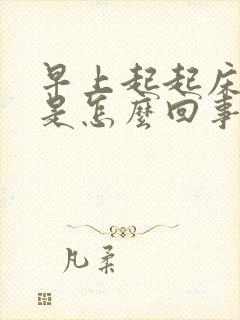 早上起起床
是怎麼回事
凡柔